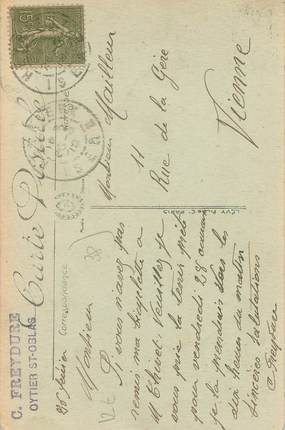 Carte Postale
C. FREYDURE
OYTIER ST-OBLAS
Correspondance
Monsieur
Si vous n'avez pas
remis ma bicyclette a
M Thivel-Veuillez je
vous prie la tenir prête
pour vendredi 28 courant
je la prendrai dans les
dix heures du matin
Sincères salutations
C. Freydure
Monsieur Mailleur
11
Rue de la Gère
Vienne
38
LÉVY
PARIS